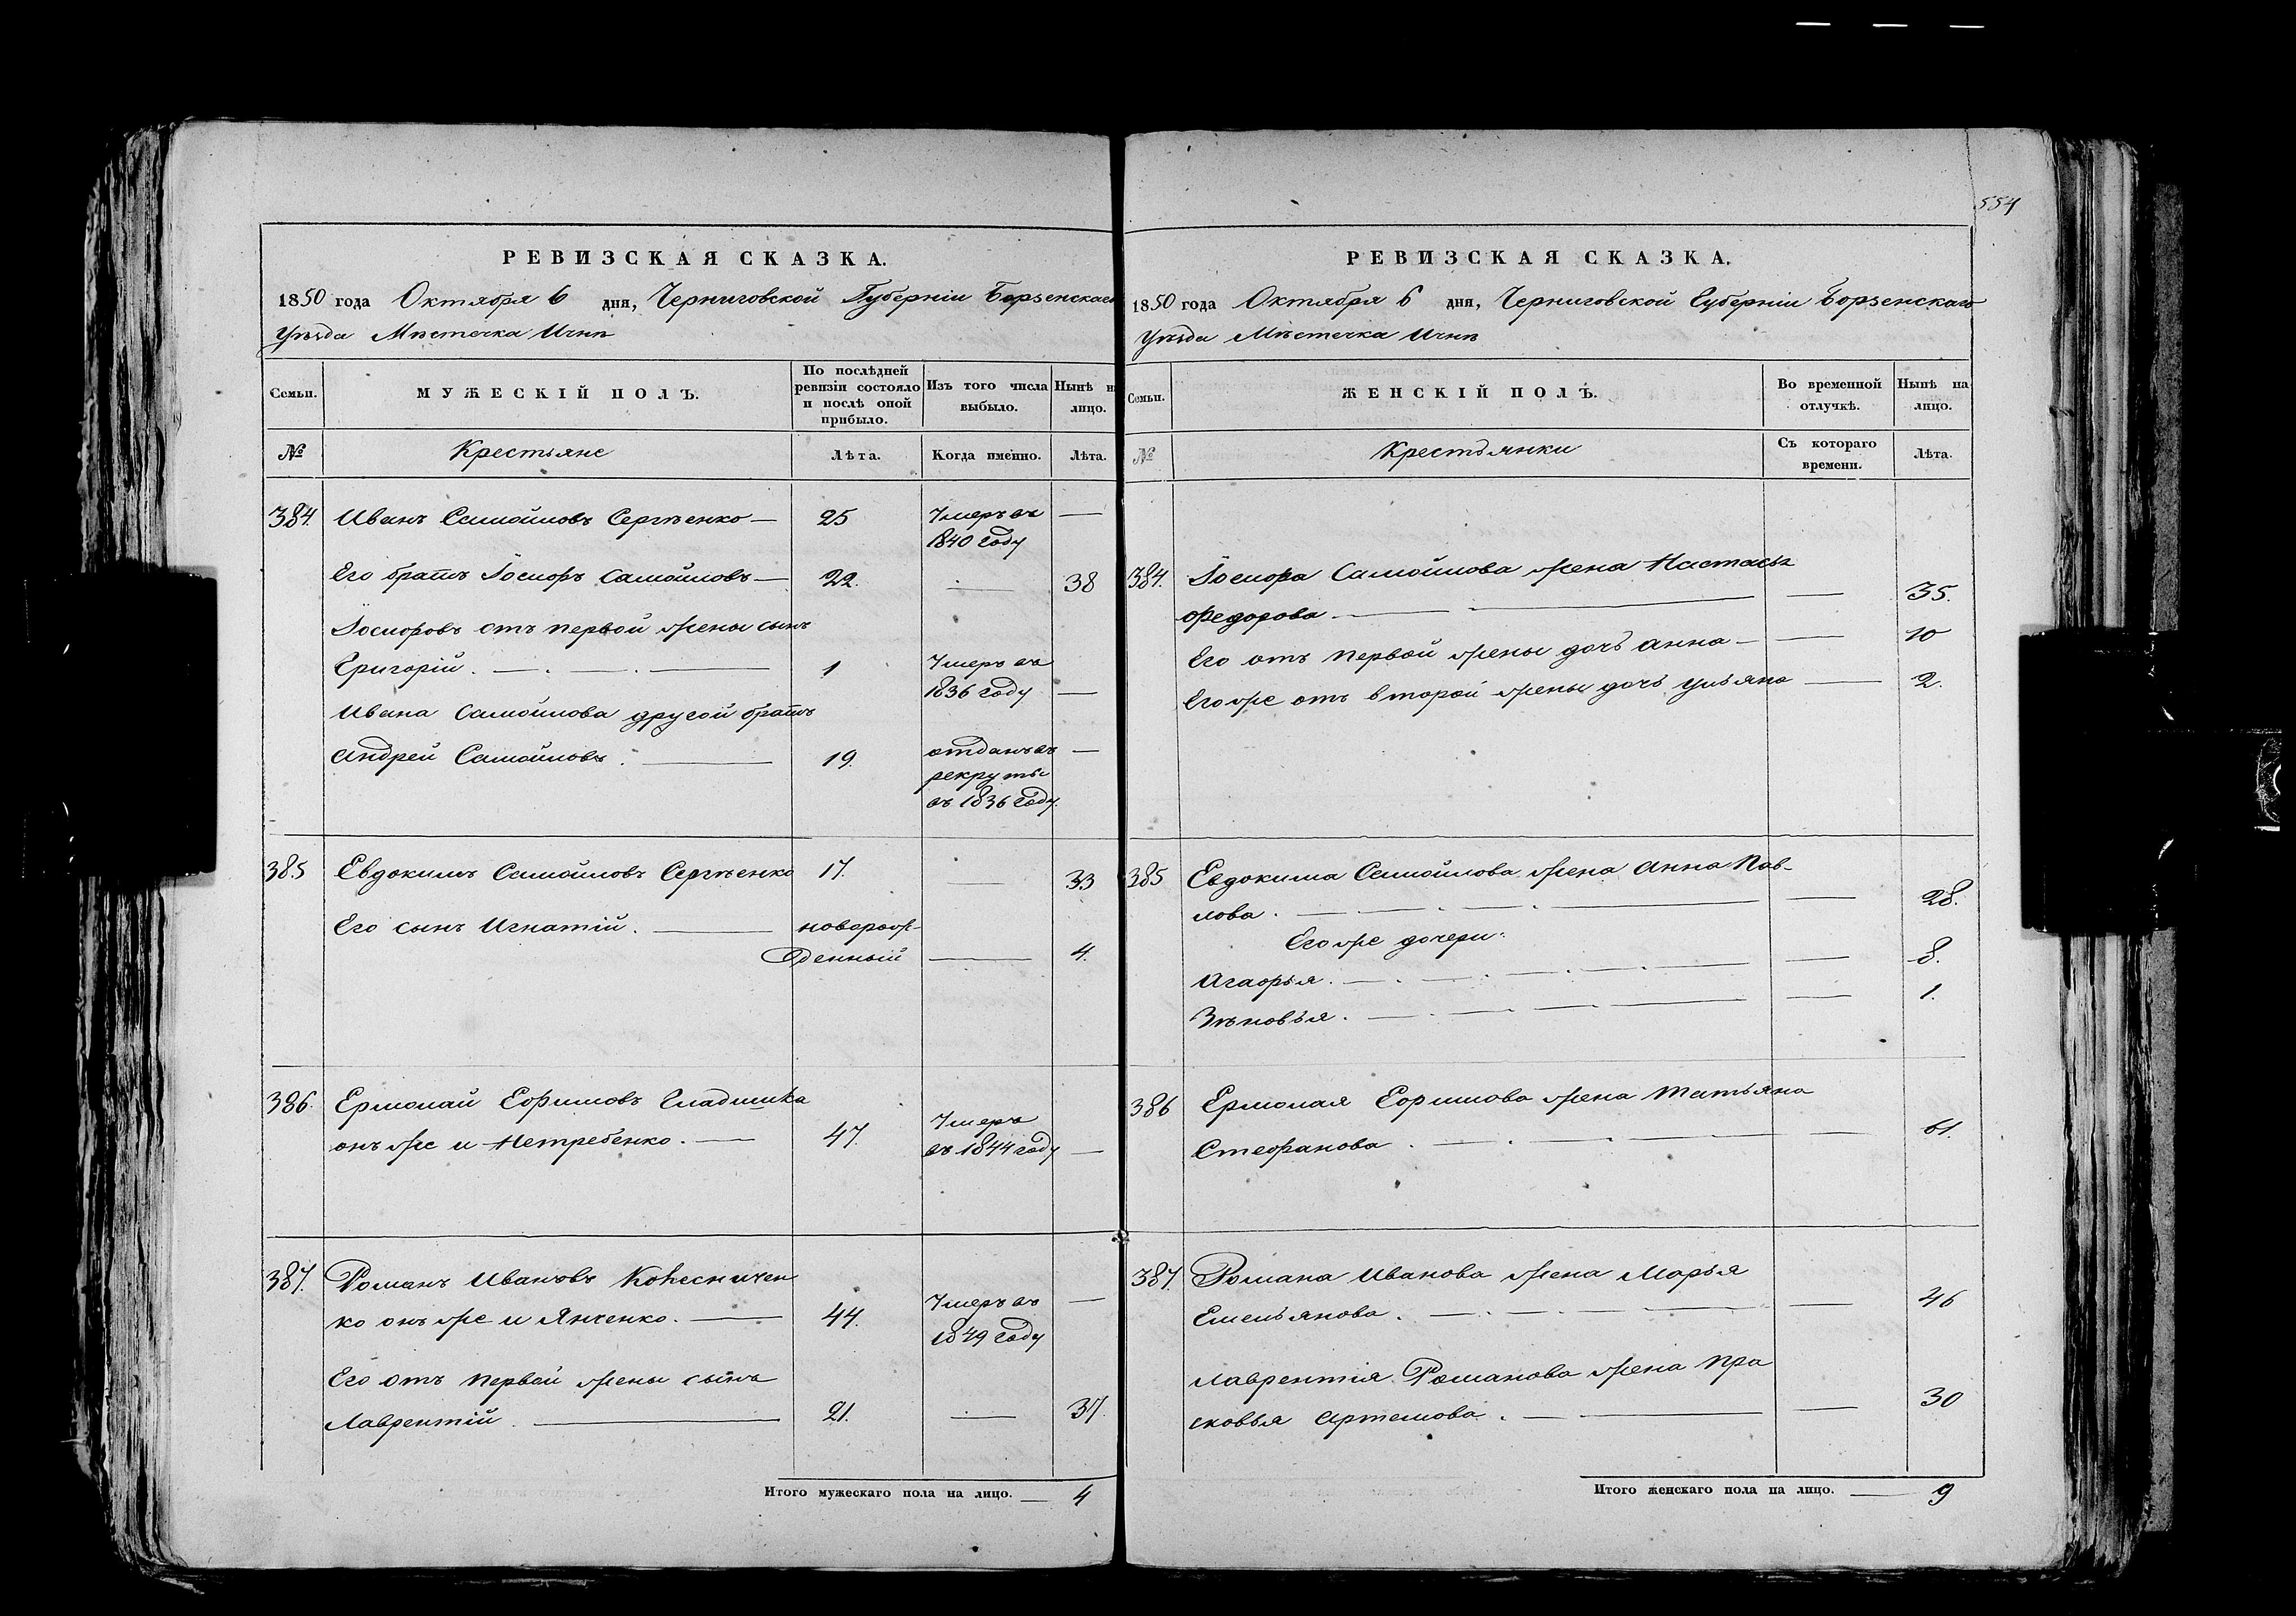 554
РЕВИЗСКАЯ СКАЗКА.
1850 года Октября 6 дня, Черниговской Губерніи Борзенскаго
Уѣзда Мѣстечка Ични
Семьи. МУЖЕСКІЙ ПОЛЪ. По послѣдней ревизіи состояло и послѣ оной прибыло. Изъ того числа выбыло. Нынѣ на лицо.
№ Крестьяне Лѣта. Когда именно. Лѣта.
384. Иванъ Самойловъ Сергѣенко — 25 Умеръ въ —
1840 году
Его братъ Іосифъ Самойловъ — 22. — 38
Іосифовъ отъ первой жены сынъ
Григорій. — 1 Умеръ въ
1836 году —
Ивана Самойлова другой братъ
Андрей Самойловъ. — 19. отданъ въ —
рекруты
въ 1836 году.
385 Евдокимъ Самойловъ Сергѣенко 17. — 33
Его сынъ Игнатій. — новорож-
денный — 4.
386. Ермолай Ефимовъ Гладишка
онъ же и Нетребенко. — 47. Умеръ
въ 1844 году —
387. Романъ Ивановъ Колесничен
ко онъ же и Янченко. — 44. Умеръ въ —
1849 году
Его отъ первой жены сынъ
Лаврентій. — 21. — 37.
Итого мужескаго пола на лицо. — 4
РЕВИЗСКАЯ СКАЗКА.
1850 года Октября 6 дня, Черниговской Губерніи Борзенскаго
Уѣзда Мѣстечка Ични
Семьи. ЖЕНСКІЙ ПОЛЪ. Во временной отлучкѣ. Нынѣ на лицо.
№ Крестьянки Съ котораго времени. Лѣта.
384. Іосифа Самойлова жена Настасья
Федорова — — 35.
Его отъ первой жены дочь Анна — — 10
Его же отъ второй жены дочь Ульяна — 2.
385 Евдокима Самойлова жена Анна Пав-
лова. — — 28.
Его же дочери:
Агафья. — — 8.
Зѣновья. — — 1.
386 Ермолая Ефимова жена Татьяна
Стефанова. — — 61.
387. Романа Иванова жена Марья
Емельянова. — — 46
Лаврентія Романова жена Пра
сковья Артемова. — — 30
Итого женскаго пола на лицо. — 9